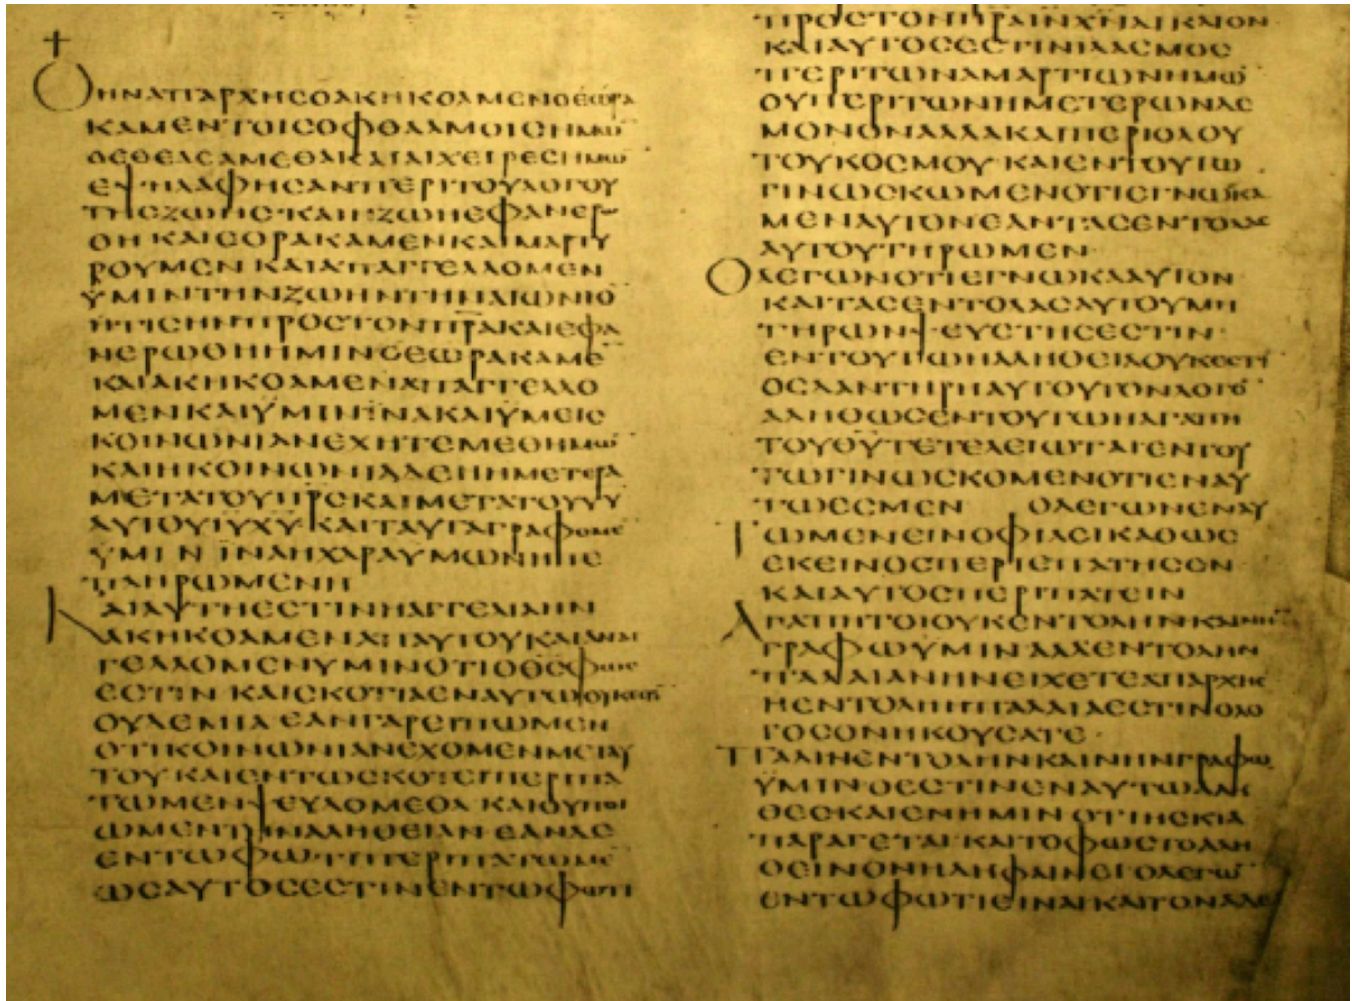 ΟΗΝΑΠΑΡΧΗϹΟΑΚΗΚΟΑΜΕΝΟΕΩΡΑ
ΚΑΜΕΝΤΟΙϹΟΦΘΑΛΜΟΙϹΗΜΩ̅
ΟΕΘΕΑϹΑΜΕΘΑΚΑΙΑΙΧΕΙΡΕϹΗΜΩ̅
ΕΨΗΛΑΦΗϹΑΝΠΕΡΙΤΟΥΛΟΓΟΥ
ΤΗϹΖΩΗϹ·ΚΑΙΗΖΩΗΕΦΑΝΕΡΩ
ΘΗ ΚΑΙΕΟΡΑΚΑΜΕΝΚΑΙΜΑΡΤΥ
ΡΟΥΜΕΝ ΚΑΙΑΠΑΓΓΕΛΛΟΜΕΝ
ΫΜΙΝΤΗΝΖΩΗΝΤΗΝΑΙΩΝΙΟ̅
ΗΤΙϹΗΝΠΡΟϹΤΟΝΠ̅Ρ̅Α̅ΚΑΙΕΦΑ
ΝΕΡΩΘΗΗΜΙΝΟΕΩΡΑΚΑΜΕ̅
ΚΑΙΑΚΗΚΟΑΜΕΝΑΠΑΓΓΕΛΛΟ
ΜΕΝΚΑΙΫΜΙΝΪΝΑΚΑΙΫΜΕΙϹ
ΚΟΙΝΩΝΙΑΝΕΧΗΤΕΜΕΘΗΜΩ̅
ΚΑΙΗΚΟΙΝΩΝΙΑΔΕΗΗΜΕΤΕΡΑ
ΜΕΤΑΤΟΥΠ̅Ρ̅Ϲ̅ΚΑΙΜΕΤΑΤΟΥΥ̅Υ̅
ΑΥΤΟΥΙ̅Υ̅Χ̅Υ̅·ΚΑΙΤΑΥΤΑΓΡΑΦΟΜΕ̅
ΫΜΙΝ ΪΝΑΗΧΑΡΑΥΜΩΝΗΠΕ
ΠΛΗΡΩΜΕΝΗ
ΚΑΙΑΥΤΗΕϹΤΙΝΗΑΓΓΕΛΙΑΗΝ
ΑΚΗΚΟΑΜΕΝΑΠΑΥΤΟΥΚΑΙΑΝΑΓ
ΓΕΛΛΟΜΕΝΥΜΙΝΟΤΙΟΘ̅Ϲ̅ΦΩϹ
ΕϹΤΙΝ ΚΑΙϹΚΟΤΙΑΕΝΑΥΤΩΟΥΚΕϹΤΙ̅
ΟΥΔΕΜΙΑ ΕΑΝΓΑΡΕΙΠΩΜΕΝ
ΟΤΙΚΟΙΝΩΝΙΑΝΕΧΟΜΕΝΜΕΤΑΥ
ΤΟΥ ΚΑΙΕΝΤΩϹΚΟΤΕΙΠΕΡΙΠΑ
ΤΩΜΕΝΨΕΥΔΟΜΕΘΑ ΚΑΙΟΥΠΟΙ
ΩΜΕΝΤΗΝΑΛΗΘΕΙΑΝ ΕΑΝΔΕ
ΕΝΤΩΦΩΤΙΠΕΡΙΠΑΤΩΜΕ̅
ΩϹΑΥΤΟϹΕϹΤΙΝΕΝΤΩΦΩΤΙ
ΠΡΟϹΤΟΝΠ̅Ρ̅Α̅ΙΝ̅Χ̅Ν̅ΔΙΚΑΙΟΝ
ΚΑΙΑΥΤΟϹΕϹΤΙΝΙΛΑϹΜΟϹ
ΠΕΡΙΤΩΝΑΜΑΡΤΙΩΝΗΜΩ̅
ΟΥΠΕΡΙΤΩΝΗΜΕΤΕΡΩΝΔΕ
ΜΟΝΟΝΑΛΛΑΚΑΙΠΕΡΙΟΛΟΥ
ΤΟΥΚΟϹΜΟΥ·ΚΑΙΕΝΤΟΥΤΩ
ΓΙΝΩϹΚΩΜΕΝΟΤΙΕΓΝΩΚΑ
ΜΕΝΑΥΤΟΝΕΑΝΤΑϹΕΝΤΟΛΑϹ
ΑΥΤΟΥΤΗΡΩΜΕΝ·
ΟΛΕΓΩΝΟΤΙΕΓΝΩΚΑΑΥΤΟΝ
ΚΑΙΤΑϹΕΝΤΟΛΑϹΑΥΤΟΥΜΗ
ΤΗΡΩΝΨΕΥϹΤΗϹΕϹΤΙΝ·
ΕΝΤΟΥΤΩΗΑΛΗΘΕΙΑΟΥΚΕϹΤΙ̅
ΟϹΔΑΝΤΗΡΗΑΥΤΟΥΤΟΝΛΟΓΟ̅
ΑΛΗΘΩϹΕΝΤΟΥΤΩΗΑΓΑΠΗ
ΤΟΥΘ̅Υ̅ΤΕΤΕΛΕΙΩΤΑΙΕΝΤΟΥ
ΤΩΓΙΝΩϹΚΟΜΕΝΟΤΙΕΝΑΥ
ΤΩΕϹΜΕΝ ΟΛΕΓΩΝΕΝΑΥ
ΤΩΜΕΝΕΙΝΟΦΙΛΕΙΚΑΘΩϹ
ΕΚΕΙΝΟϹΠΕΡΙΕΠΑΤΗϹΕΝ
ΚΑΙΑΥΤΟϹΠΕΡΙΠΑΤΕΙΝ
ΑΓΑΠΗΤΟΙΟΥΚΕΝΤΟΛΗΝΚΑΙΝΗ̅
ΓΡΑΦΩΥΜΙΝ ΑΛΛΕΝΤΟΛΗΝ
ΠΑΛΑΙΑΝΗΝΕΙΧΕΤΕΑΠΑΡΧΗϹ
ΗΕΝΤΟΛΗΗΠΑΛΑΙΑΕϹΤΙΝΟΛΟ
ΓΟϹΟΝΗΚΟΥϹΑΤΕ·
ΠΑΛΙΝΕΝΤΟΛΗΝΚΑΙΝΗΝΓΡΑΦΩ
ΫΜΙΝΟΕϹΤΙΝΕΝΑΥΤΩΑΛΗ
ΘΕϹΚΑΙΕΝΗΜΙΝ ΟΤΙΗϹΚΙΑ
ΠΑΡΑΓΕΤΑΙ·ΚΑΙΤΟΦΩϹΤΟΑΛΗ
ΘΕΙΝΟΝΗΔΗΦΑΙΝΕΙ·ΟΛΕΓΩ̅
ΕΝΤΩΦΩΤΙΕΙΝΑΙΚΑΙΤΟΝΑΔΕΛ